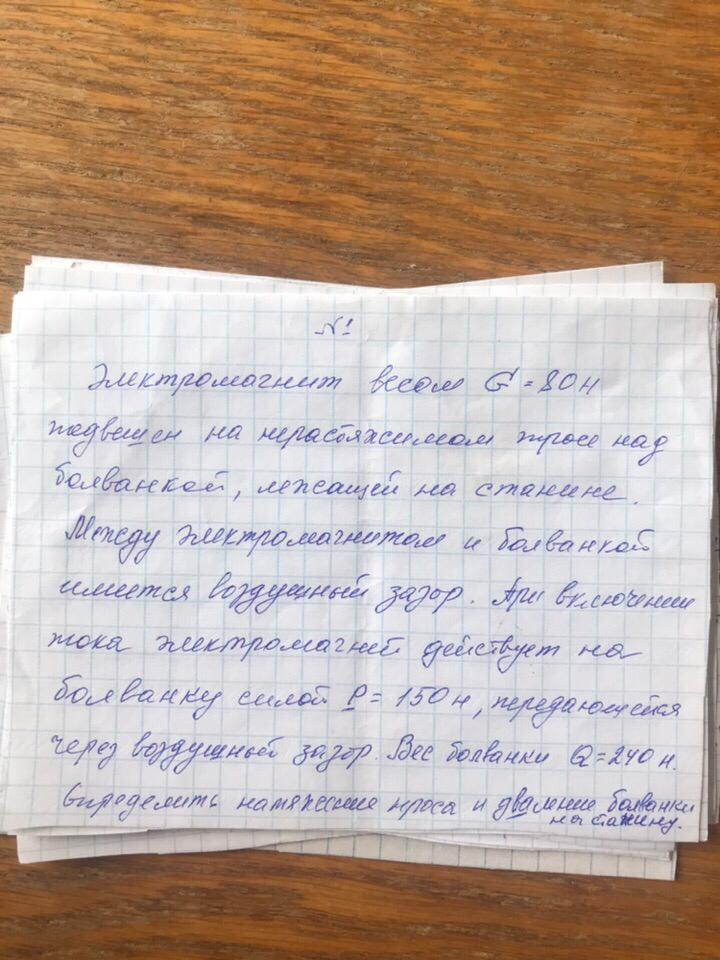 №1
Электромагнит весом G = 80 н
подвешен на нерастяжимом тросе над
болванкой, лежащей на станине.
Между электромагнитом и болванкой
имеется воздушный зазор. При включении
тока электромагнит действует на
болванку силой P = 150 н, передающейся
через воздушный зазор. Вес болванки Q = 240 н.
Определить натяжение троса и давление болванки
на станину.